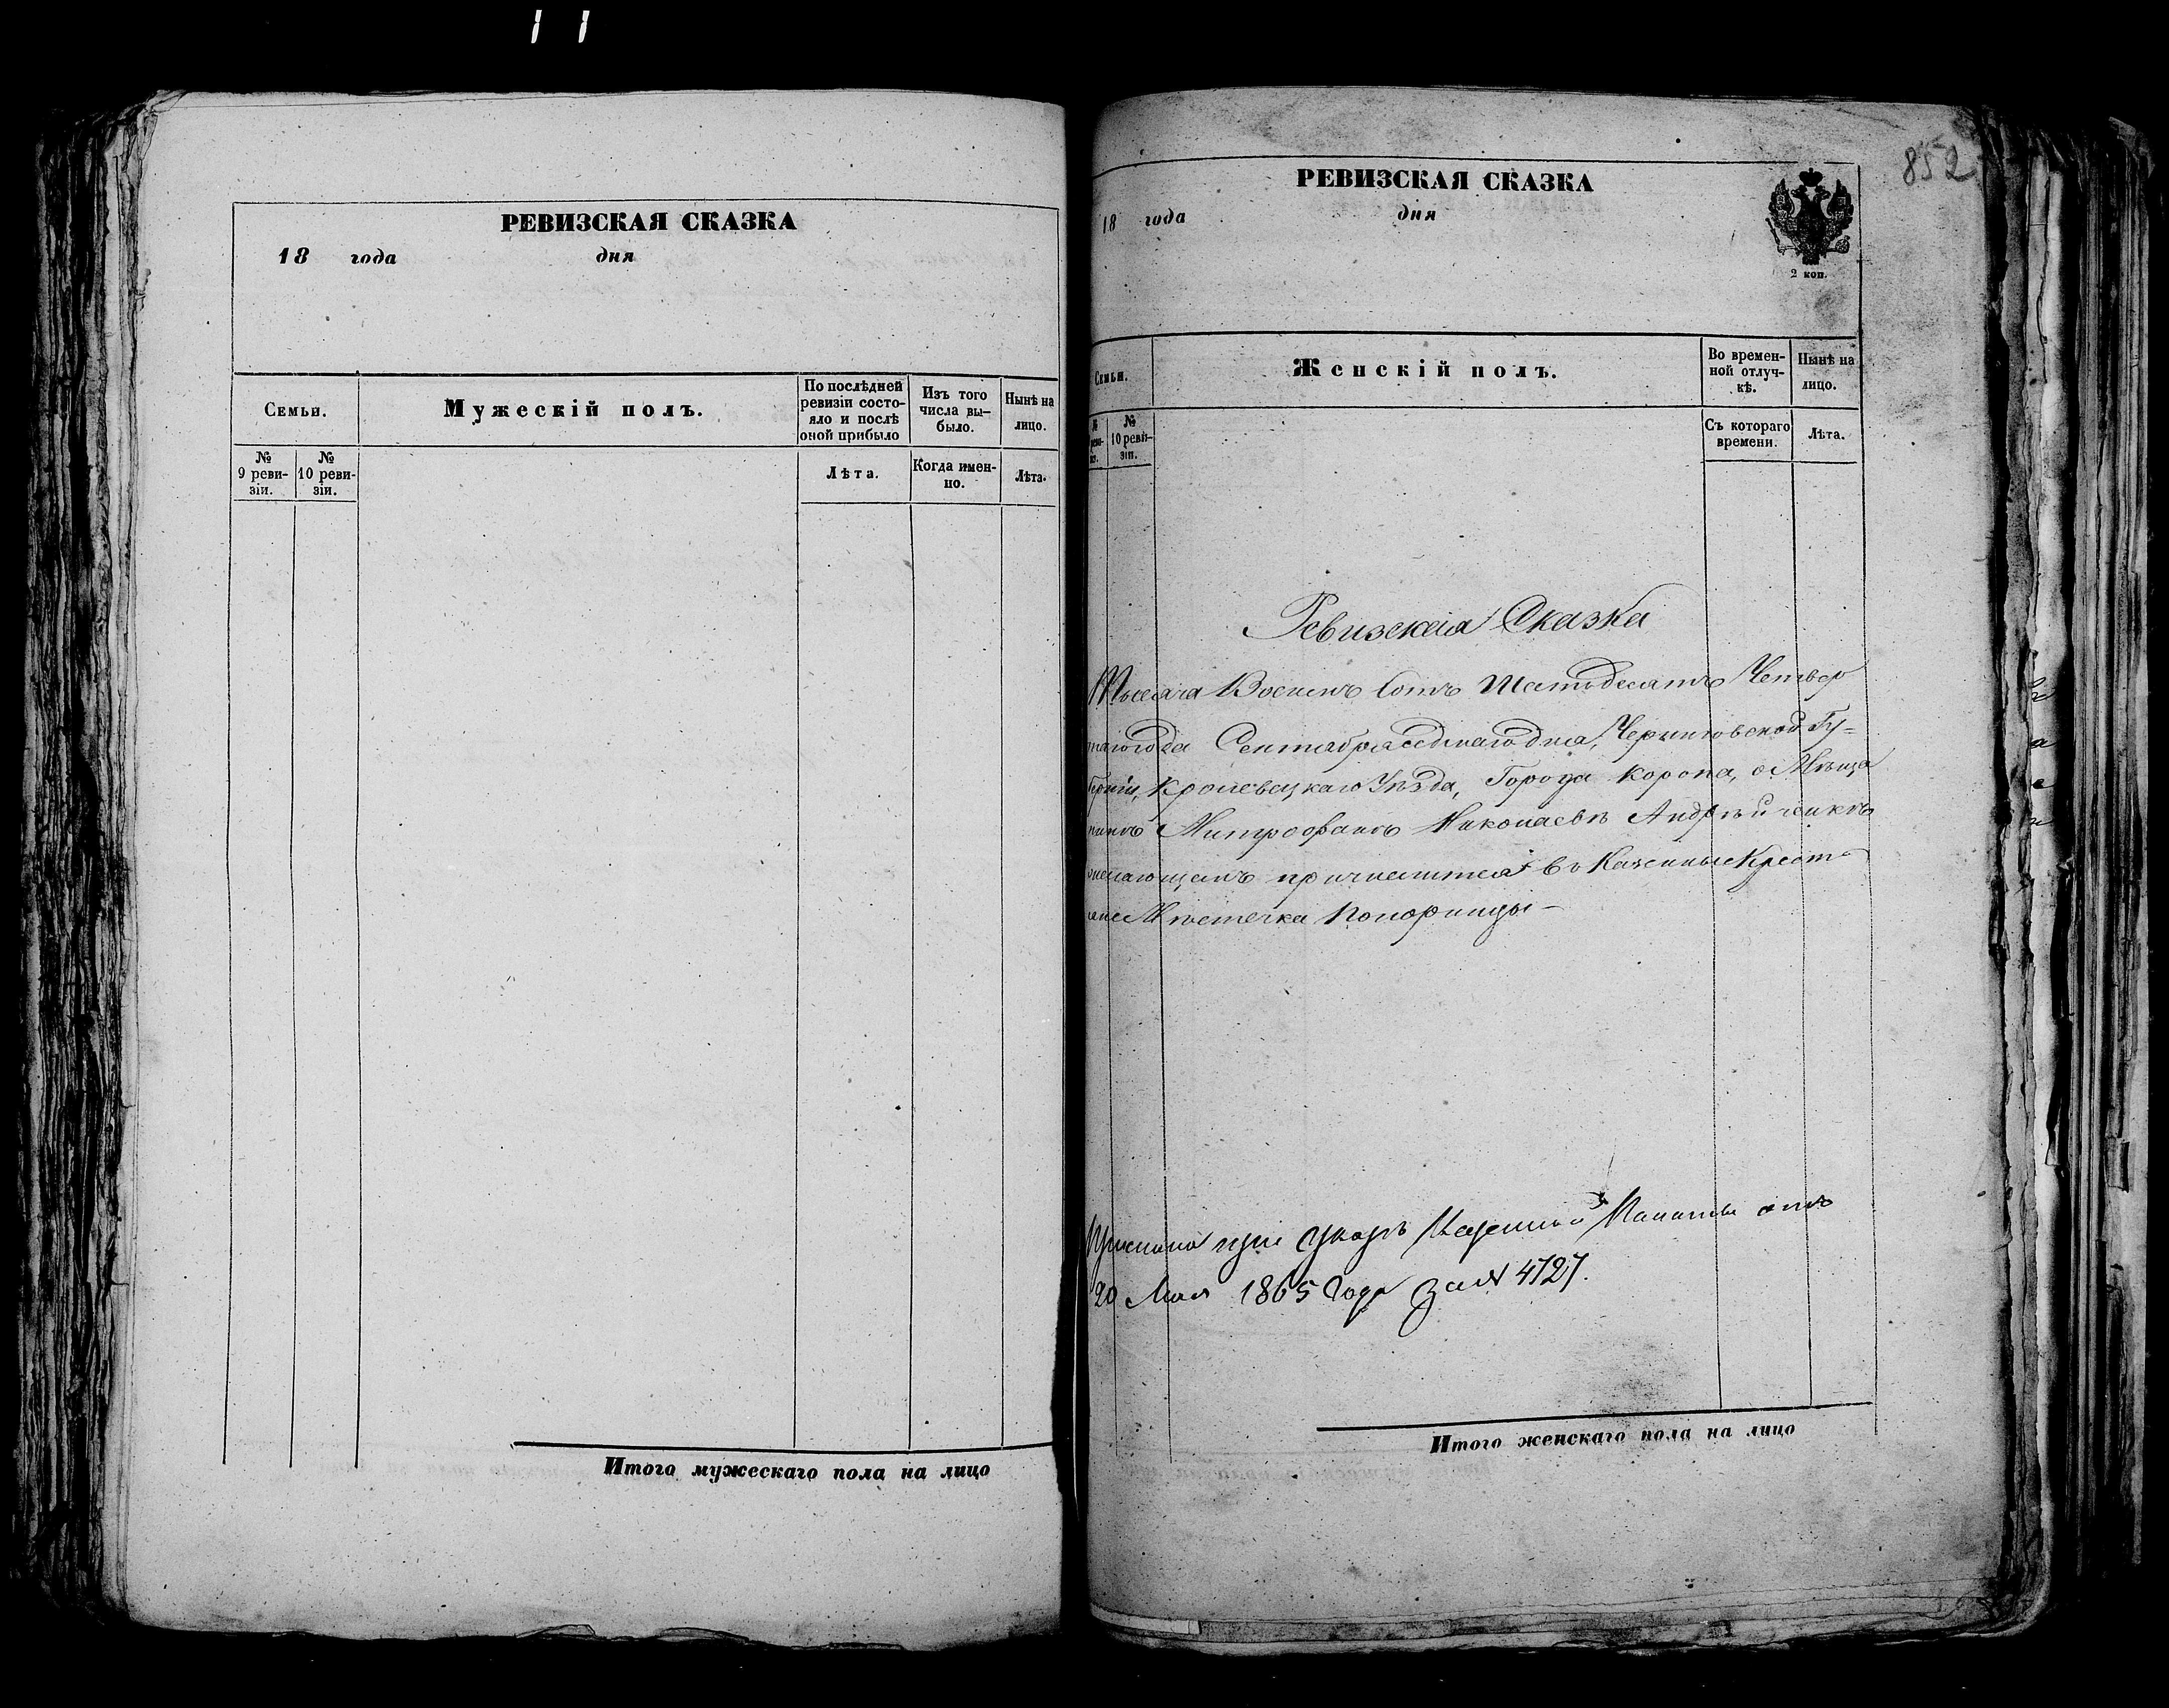 РЕВИЗСКАЯ СКАЗКА
18 года дня
Семьи.
Мужескій полъ.
По послѣдней
ревизіи состо-
яло и послѣ
оной прибыло
Изъ того
числа вы-
было.
Нынѣ на
лицо.
№
9 реви-
зіи.
№
10 реви-
зіи.
Лѣта.
Когда имен-
но.
Лѣта.
Итого мужескаго пола на лицо
852
РЕВИЗСКАЯ СКАЗКА
18 года дня
2 коп.
Семьи.
Женскій полъ.
Во времен-
ной отлуч-
кѣ.
Нынѣ на
лицо.
№
10 реви-
зіи.
Съ котораго
времени.
Лѣта.
Ревизская Сказка
Тысяча Восемъ Сотъ Шестьдесятъ Четвер
таго года Сентября седмаго дня, Черниговской Гу-
берніи, Кролевецкаго Уѣзда, Города Коропа, о Мѣща
нинѣ Митрофанѣ Николаевѣ Андрѣйченкѣ
желающемъ причислится въ Казенные Кресть
яне Мѣстечка Понорницы
Прислана при Указѣ Казенной Палаты отъ
20 Мая 1865 Года За № 4727.
Итого женскаго пола на лицо